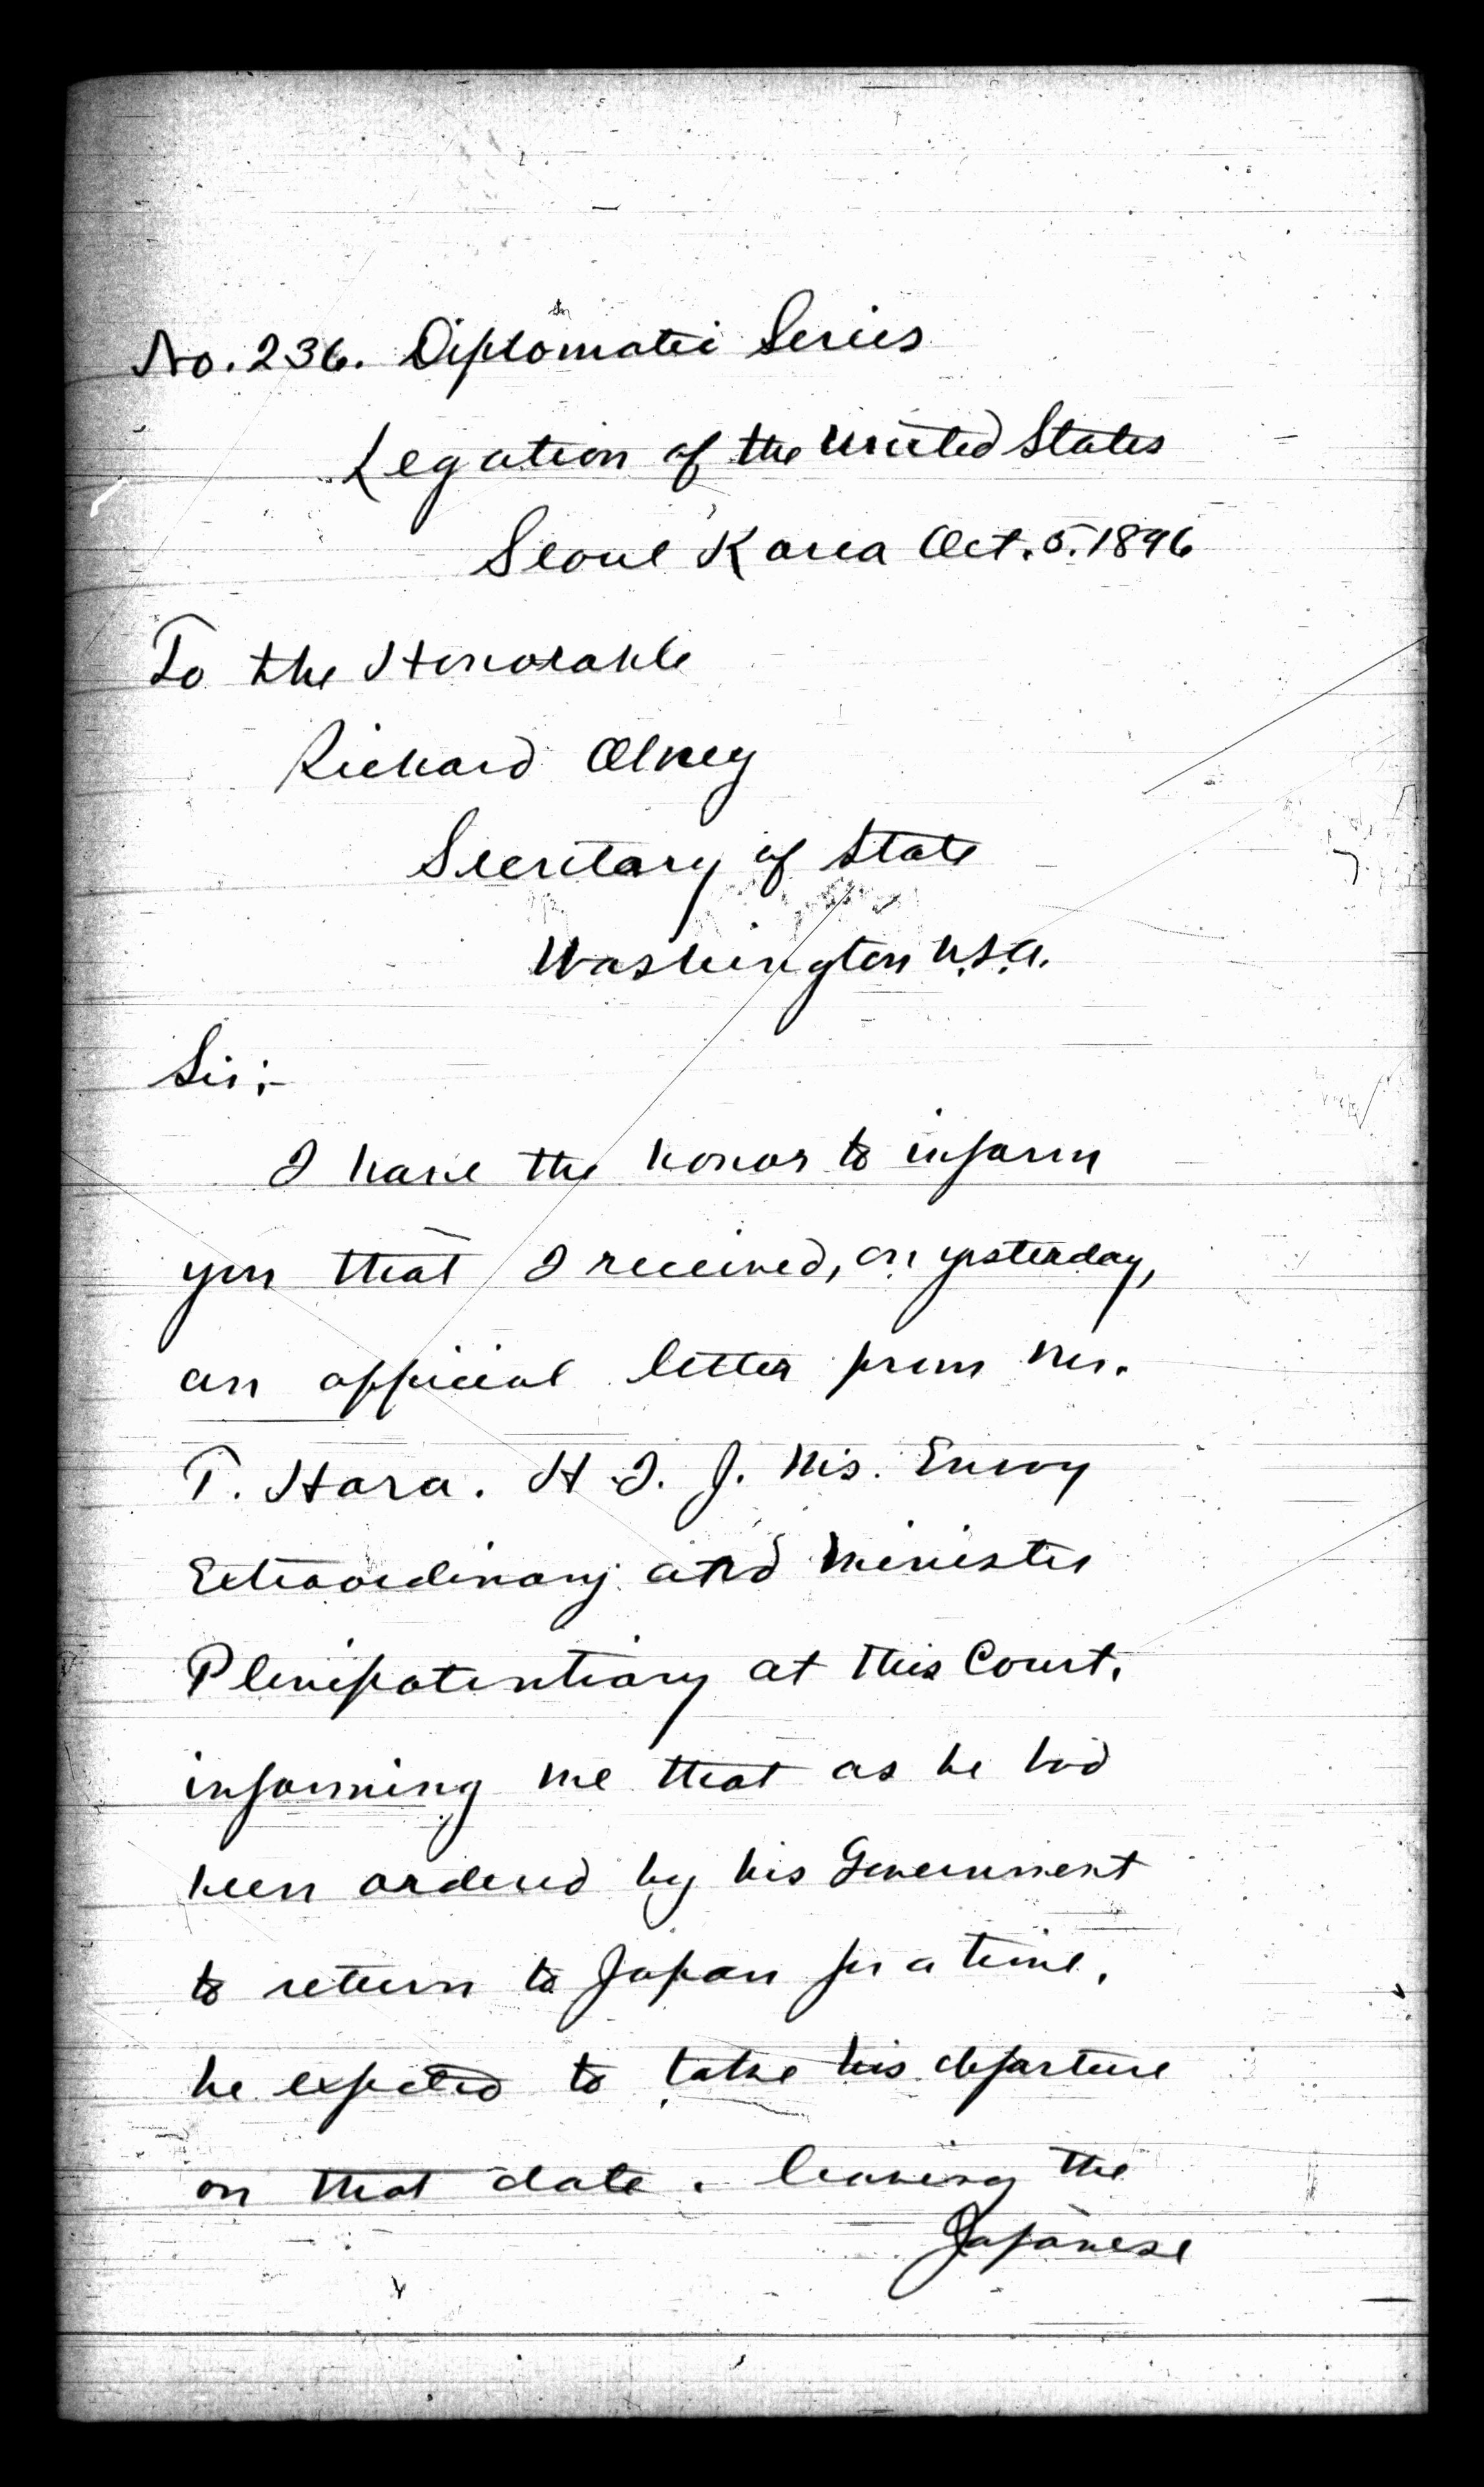 No. 236. Diplomatic Series
Legation of the United States
Seoul Korea Oct. 5. 1896
To the Honorable
Richard Olney
Secretary of State
Washington U.S.A.
Sir:-
I have the honor to inform
you that I received, on yesterday,
an official letter from Mr.
T. Hara. H. I. J. M's. Envoy
Extraordinary and Minister
Plenipotentiary at this Court,
informing me that as he had
been ordered by his Government
to return to Japan for a time,
he expected to take his departure
on that date, leaving the
Japanese